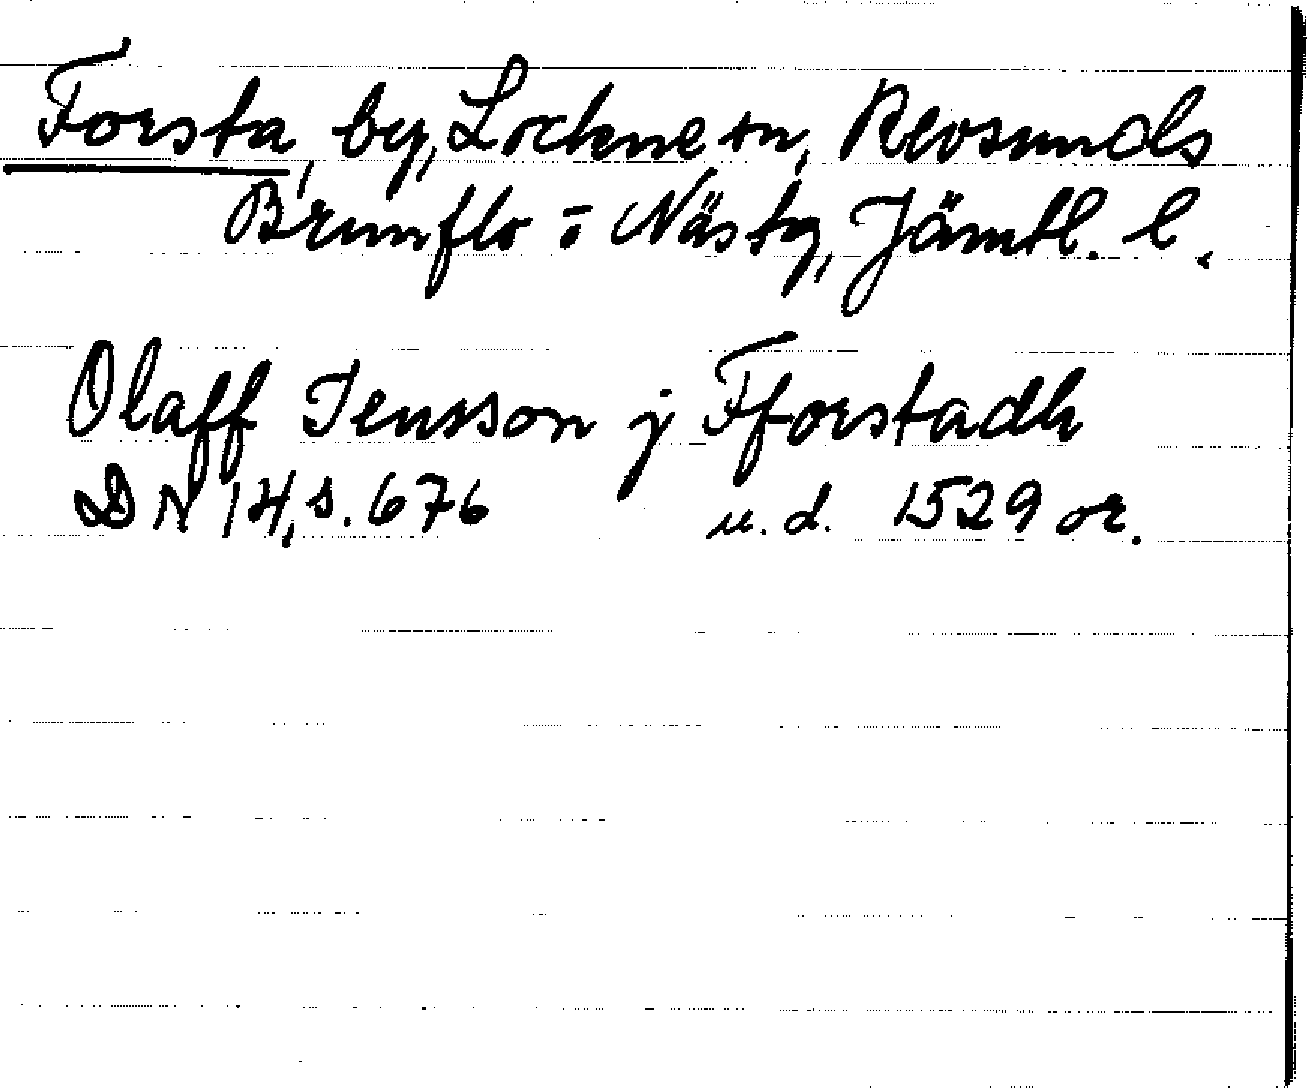 Forsta, by, Lockne sn, Revsunds
Brunflo o Näs tg, Jämtl. l.
Olaff Jensson j Fforstadh
DN 14, s. 676 u. d. 1529 or.